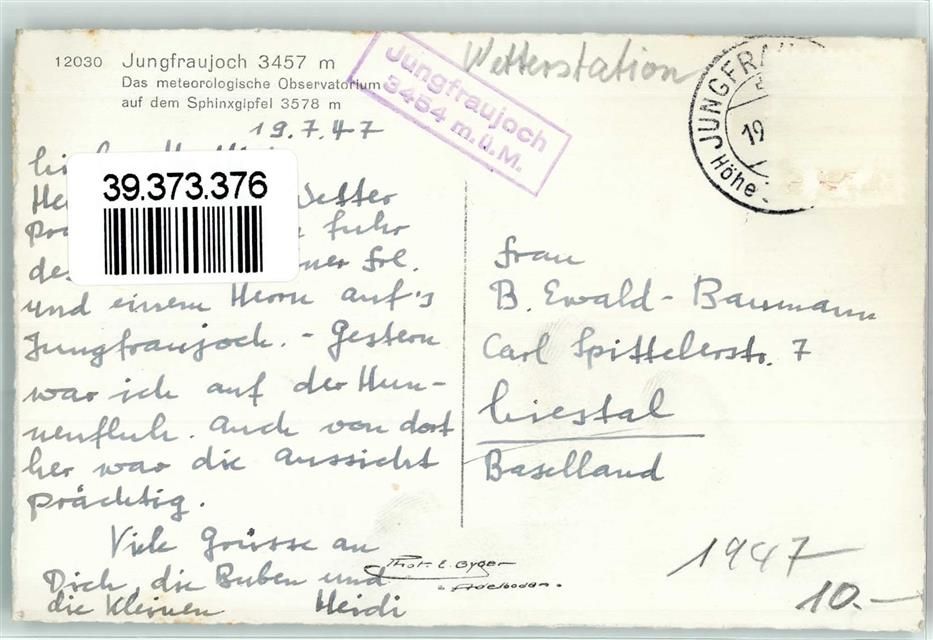 12030 Jungfraujoch 3457 m
Das meteorologische Observatorium
auf dem Sphinxgipfel 3578 m
Jungfraujoch
3454 m.ü.M.
Wetterstation
JUNGFRAU
Höhe
19.7.47
39.373.376
Wetter
fuhr
Frl.
und einem Herrn auf's
Jungfraujoch. - Gestern
war ich auf der Hun-
nenfluh. Auch von dort
her war die Aussicht
prächtig.
Viele Grüsse an
Dich, die Buben und
die Kleinen Heidi
Frau
B. Ewald-Baumann
Carl Spittelerstr. 7
Liestal
Baselland
Phot. E. Gyger
Adelboden.
1947
10.-